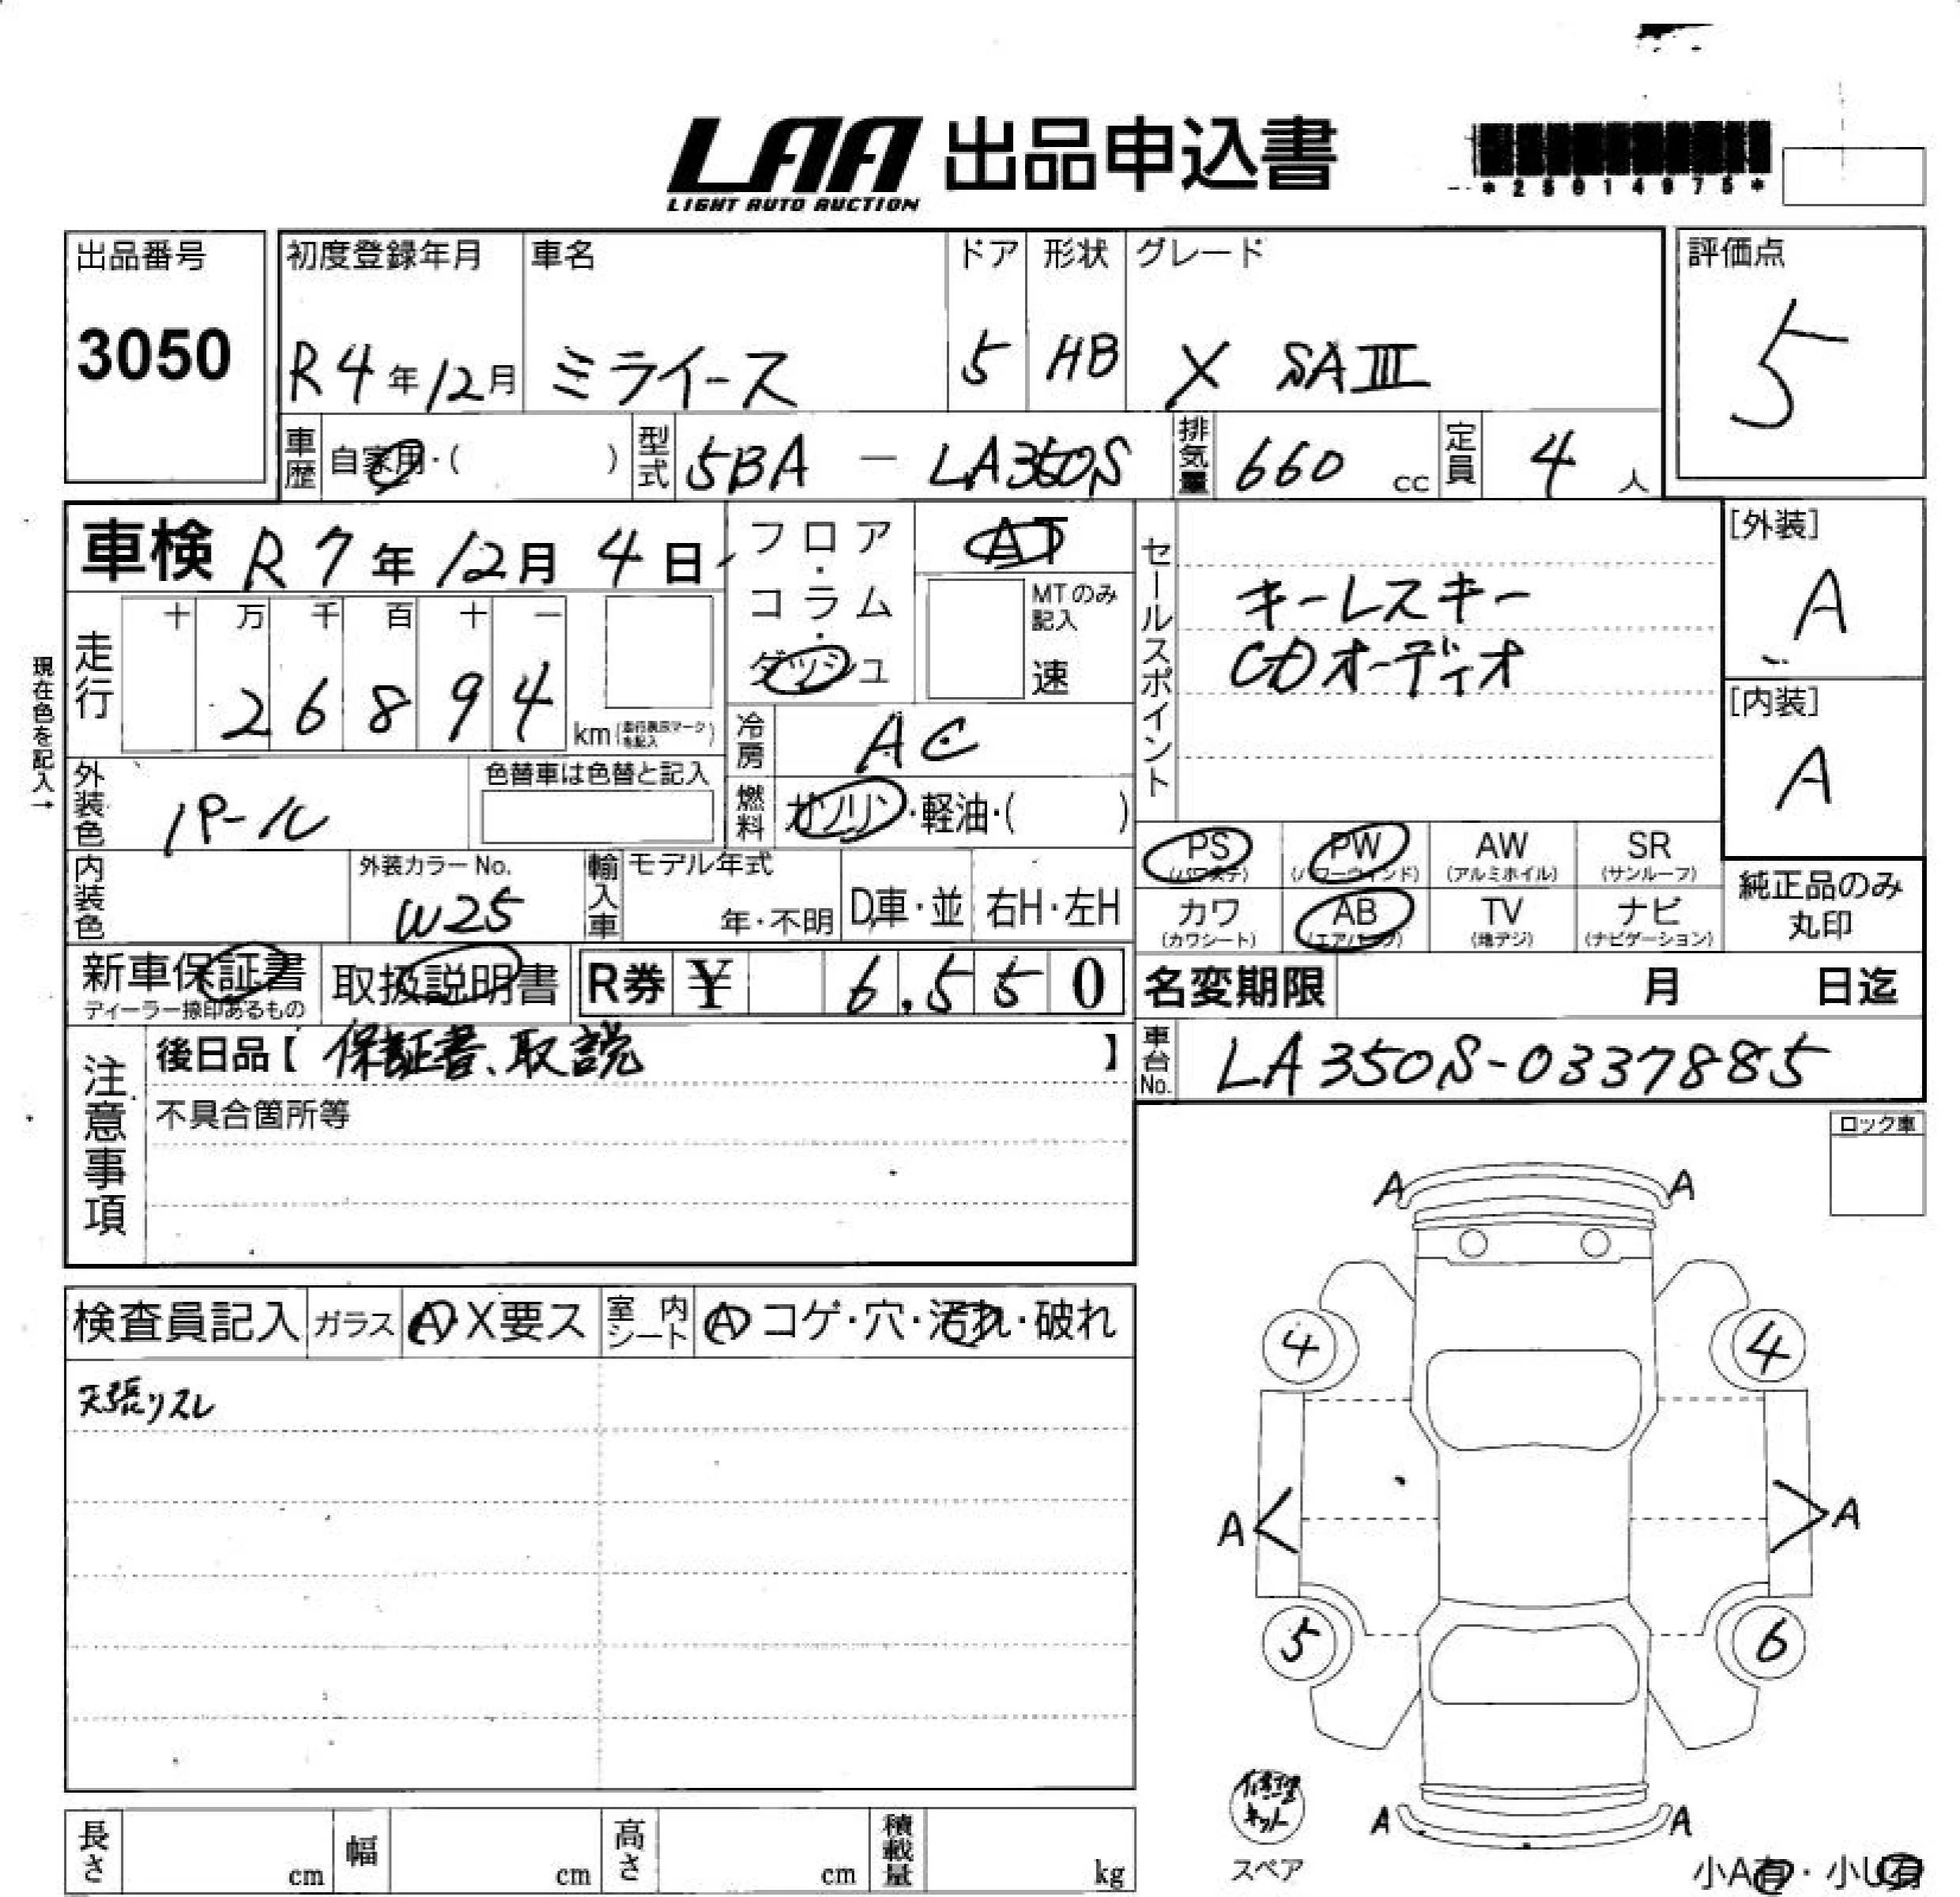 LAA 出品申込書
LIGHT AUTO AUCTION
出品番号 初度登録年月 車名 ドア 形状 グレード 評価点
3050 R4年12月 ミライース 5 HB X SAⅢ 5
車歴 自家用・( ) 型式 5BA - LA350S 排気量 660 cc 定員 4 人
車検 R7年12月4日 フロア・コラム・ダッシュ AT
MTのみ記入 速
走行 十 万 千 百 十 一
2 6 8 9 4 km
現在色を記入→
セールスポイント
キーレスキー
CDオーディオ
[外装]
A
[内装]
A
冷房 AC
外装色 パール 色替車は色替と記入
燃料 ガソリン・軽油・( )
内装色 外装カラーNo. W25 輸入車 モデル年式 年・不明 D車・並 右H・左H
PS (パワステ) PW (パワーウインド) AW (アルミホイル) SR (サンルーフ)
カワ (カワシート) AB (エアバッグ) TV (地デジ) ナビ (ナビゲーション)
純正品のみ
丸印
新車保証書 取扱説明書 R券 ¥ 6,550 名変期限 月 日迄
ディーラー捺印あるもの
注意事項 後日品【 保証書、取説 】 車台No. LA350S-0337885
不具合箇所等
ロック車
検査員記入 ガラス A X要ス 室内シート A コゲ・穴・汚れ・破れ
天張りスレ
A A
4 4
A A
5 6
A A
修理キット
スペア
小A有・小U有
長さ cm 幅 cm 高さ cm 積載量 kg